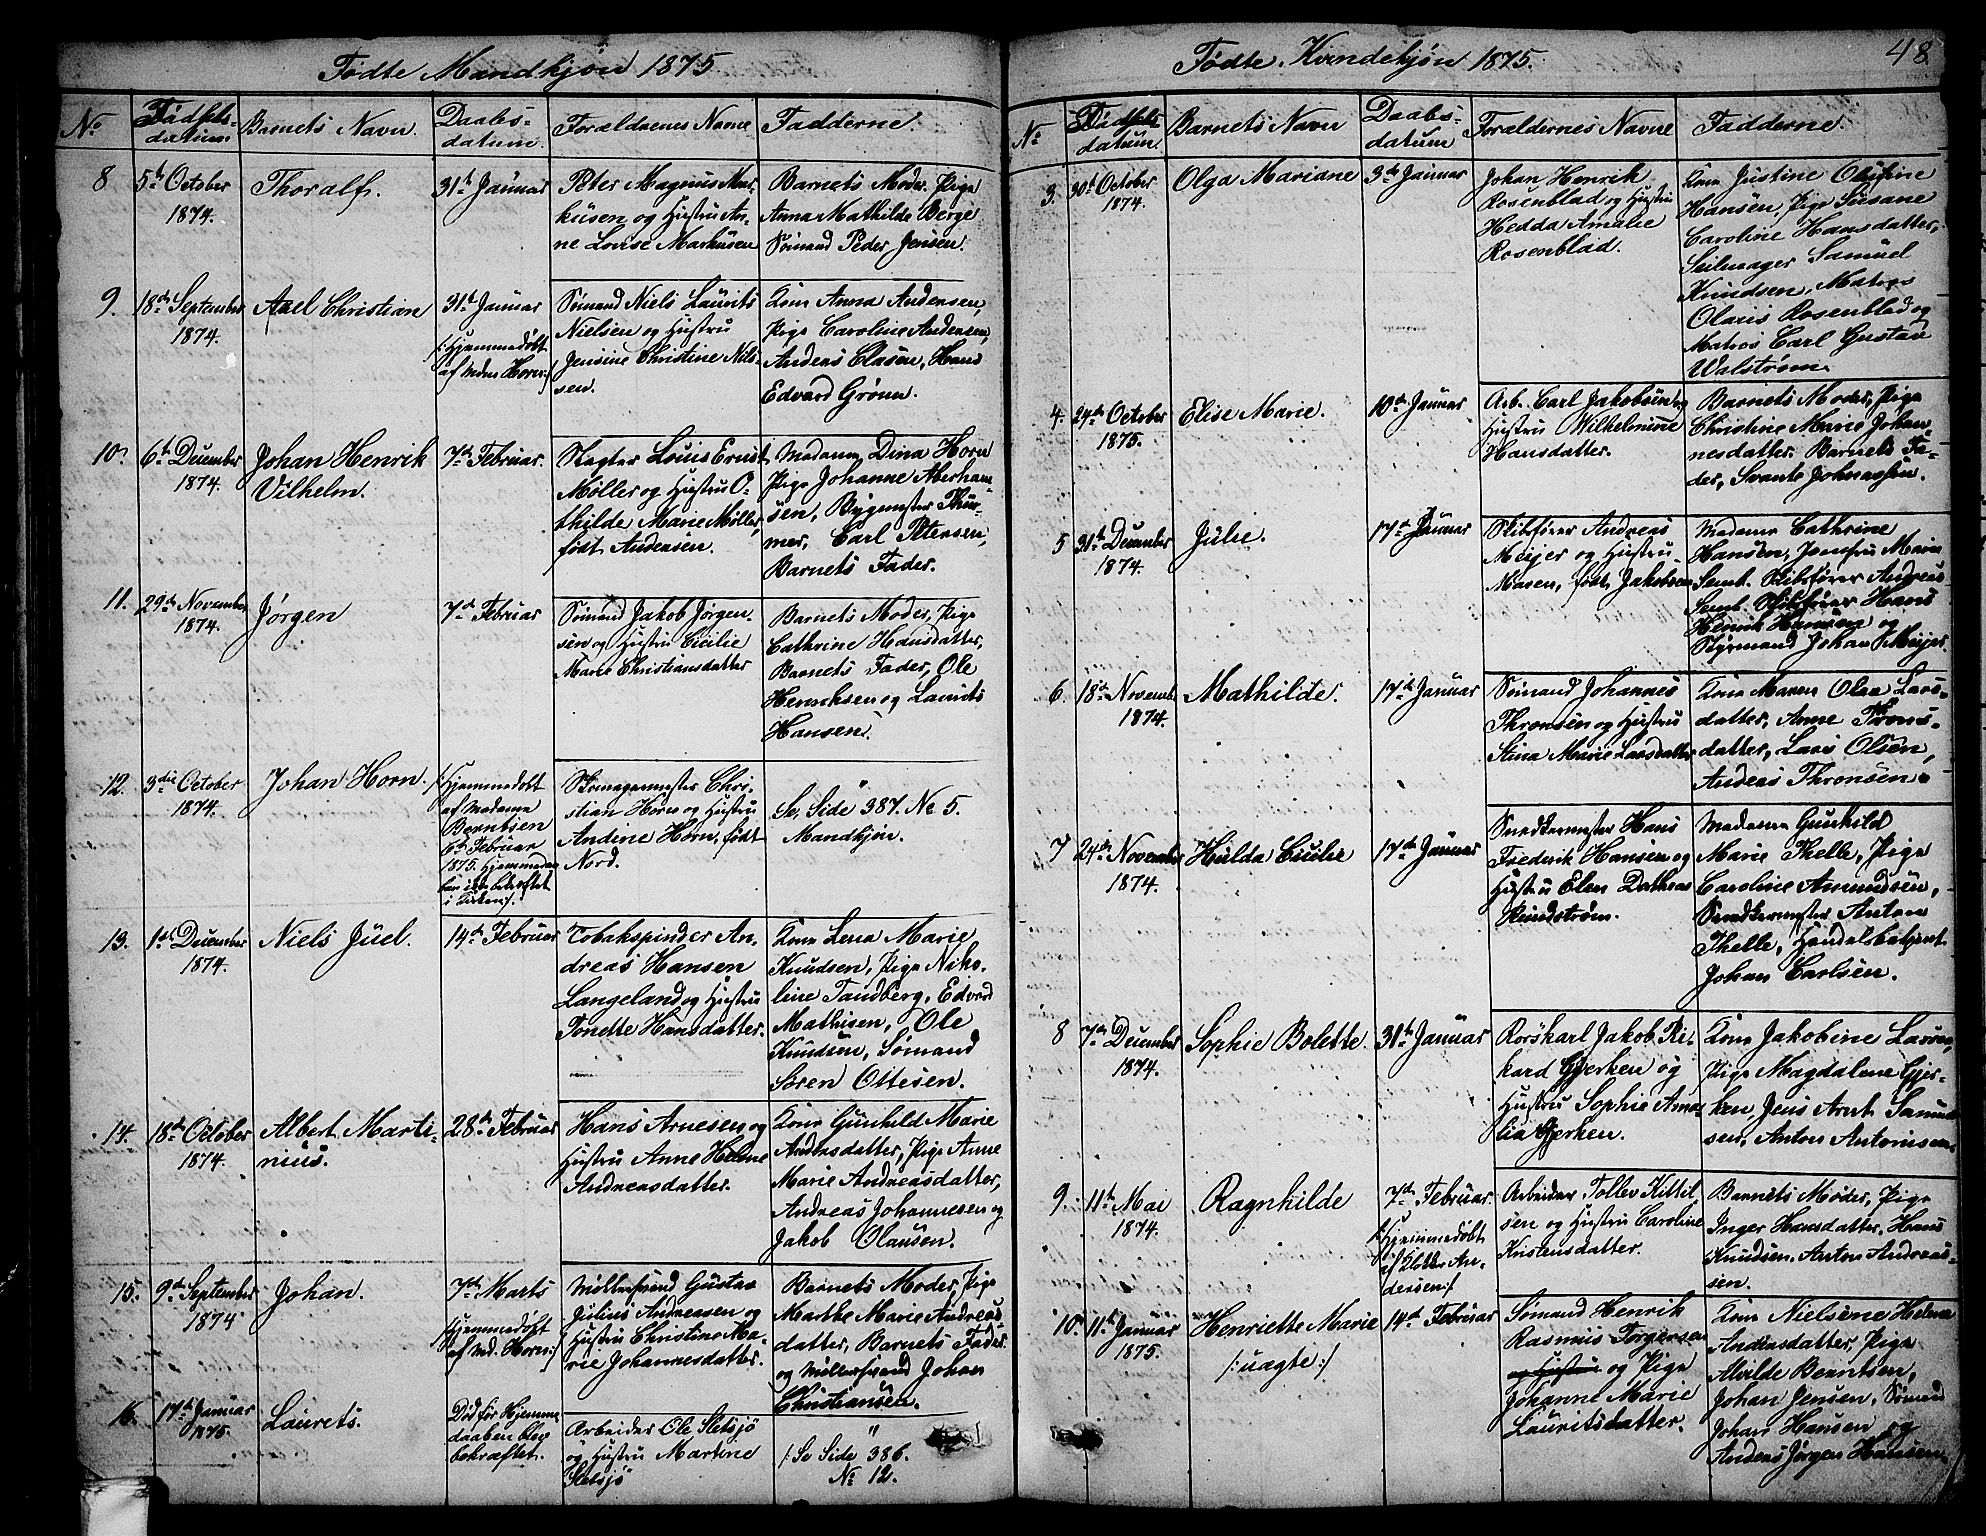 Fødte Mandkjøn 1875
No
Fødsels-
datum.
Barnets Navn.
Daabs-
datum.
Forældrenes Navne
Fadderne.
8
5te October
1874.
Thoralf.
31te Januar
Peter Magnus Mar-
kusen og Hustru An-
ne Louise Markusen
Barnets Moder, Pige
Anna Mathilde Berge
Sømand Peder Jensen.
9.
18de September
1874.
Axel Christian
31te Januar
/:Hjemmedøbt
af Mdm Horn:/
Sømand Niels Laurits
Nielsen og Hustru
Jensine Christine Niel-
sen.
Kone Anna Andersen,
Pige Caroline Andersen,
Anders Olasen, Hans
Edvard Grønn.
10.
6te December
1874.
Johan Henrik
Vilhelm.
7de Februar.
Slagter Louis Ernst
Møller og Hustru O-
thilde Marie Møller,
født Andersen.
Madame Dina Horn
Pige Johanne Aberham-
sen, Bygmester Thur-
mer, Carl Petersen,
Barnets Fader.
11.
29de November
1874.
Jørgen
7de Februar
Sømand Jakob Jørgen-
sen og Hustru Cicilie
Marie Christiansdatter
Barnets Moder, Pige
Cathrine Hansdatter,
Barnets Fader, Ole
Henriksen og Laurits
Hansen.
12.
3die October
1874.
Johan Horn.
/:Hjemmedøbt
af Madame
Berntsen
6te Februar
1875. Hjemmedaa-
ben ikke bekræftet
i Kirken:/.
Skomagermester Chri-
stian Horn og Hustru
Andine Horn, født
Nord.
"
Se, Side 387. No 5.
Mandkjøn.
13.
1ste December
1874.
Niels Juel.
14de Februar
Tobakspinder An-
dreas Hansen
Langeland og Hustru
Tonette Hansdatter.
Kone Lena Marie
Knudsen, Pige Niko-
line Tandberg, Edvard
Mathisen, Ole
Knudsen, Sømand
Søren Ottesen.
14.
18de October
1874.
Albert Marti-
nius.
28de Februar
Hans Arnesen og
Hustru Anne Helene
Andreasdatter.
Kone Gunhild Marie
Andersdatter, Pige Anne
Marie Andreasdatter,
Andreas Johannesen og
Jakob Olausen.
15.
9de September
1874
Johan.
7de Marts
/:Hjemmedøbt
af Md. Horn:/
Møllersvend Gustav
Julius Andreasen og
Hustru Christine Ma-
rie Johannesdatter.
Barnets Moder, Pige
Marthe Marie Andreas
datter, Barnets Fader
og Møllersvend Johan
Christiansen.
16.
17de Januar
1875.
Laurets.
Død før Hjemme
daaben blev
bekræftet.
Arbeider Ole Sletsjö
og Hustru Martine
Sletsjö
"
/:Se Side 386.
No 12.
Fødte Kvindekjøn 1875.
48
No
Fødsels
datum.
Barnets Navn
Daabs-
datum
Forældernes Navne
Fadderne.
3.
30te October
1874.
Olga Mariane
3de Januar
Johan Henrik
Rosenblad og Hustru
Hedda Amalie
Rosenblad.
Kone Justine Olufine
Hansen, Pige Susane
Caroline Hansdatter,
Seilmager Samuel
Knudsen, Matros
Olaus Rosenblad og
Matros Carl Gustav
Walstrøm.
4.
24de October
1875.
Elise Marie.
10de Januar
Arb. Carl Jakobsen og
Hustru Wilhelmine
Hansdatter.
Barnets Moder, Pige
Christine Marie Johan-
nesdatter, Barnets Fa-
der, Svante Johnassen.
5
31te December
1874.
Julie.
17de Januar
Skibfører Andreas
Meijer og Hustru
Maren, født Jakobsen
Madame Cathrine
Hansen, Jomfru Marie
Semb. Skibsfører Andreas
Semb. Skibsfører Hans
Henrik Hansen og
Styrmand Johan Meijer.
6.
18de Novemb.
1874.
Mathilde.
17de Januar
Sømand Johannes
Thronsen og Hustru
Stina Marie Larsdatter
Kone Maren Olea Lars-
datter, Anne Trons-
datter, Lars Olsen,
Anders Thronsen.
7
24de November
1874.
Hulda Cicilie
17de Januar
Snedkermester Hans
Frederik Hansen og
Hustru Elen Dathea
Rundstrøm.
Madame Gunhild
Marie Thelle, Pige
Caroline Amundsen,
Snedkermester Anton
Thelle, Handelsbetjent
Johan Carlsen.
8
7de December
1874.
Sophie Bolette.
31te Januar
Rorskarl Jakob Ri-
kard Gjerken og
Hustru Sophie Ama-
lia Gjerken.
Kone Jakobine Larsen,
Pige Magdalene Gjer-
ken, Jens Arnt Samuel
sen, Anton Antonisen.
9.
11te Mai
1874.
Ragnhilde
7de Februar
/:Hjemmedøbt
af Klokker An-
dersen:/
Arbeider Tollev Kittil
sen og Hustru Caroline
Kristensdatter.
Barnets Moder, Pige
Inger Hansdatter, Hans
Knudsen, Anton Andreas-
sen.
10.
11te Januar
1875.
Henriette Marie
/:uægte:/
14de Februar
Sømand Henrik
Rasmus Torgersen
og Hustru og Pige
Johanne Marie
Lauritsdatter.
Kone Nielsene Helene
Andersdatter, Pige
Alvilde Berntsen,
Johan Jensen, Sømand
Johan Hansen og
Anders Jørgen Hansen.